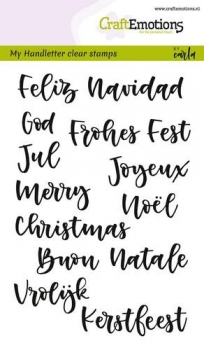 CraftEmotions
www.craftemotions.nl
My Handletter clear stamps
BY carla
Feliz Navidad
God
Frohes Fest
Jul
Joyeux
Merry
Noël
Christmas
Buon Natale
Vrolijk
Kerstfeest